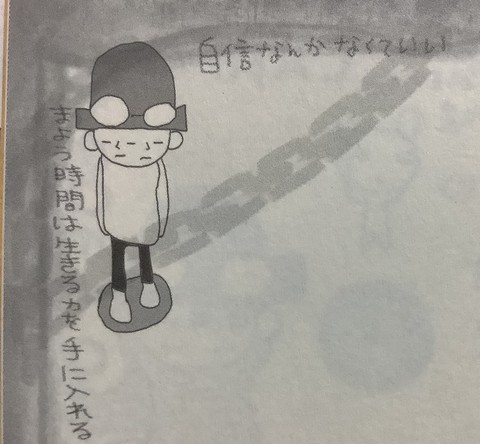 自信なんかなくていい
まよう時間は生きる力を手に入れる